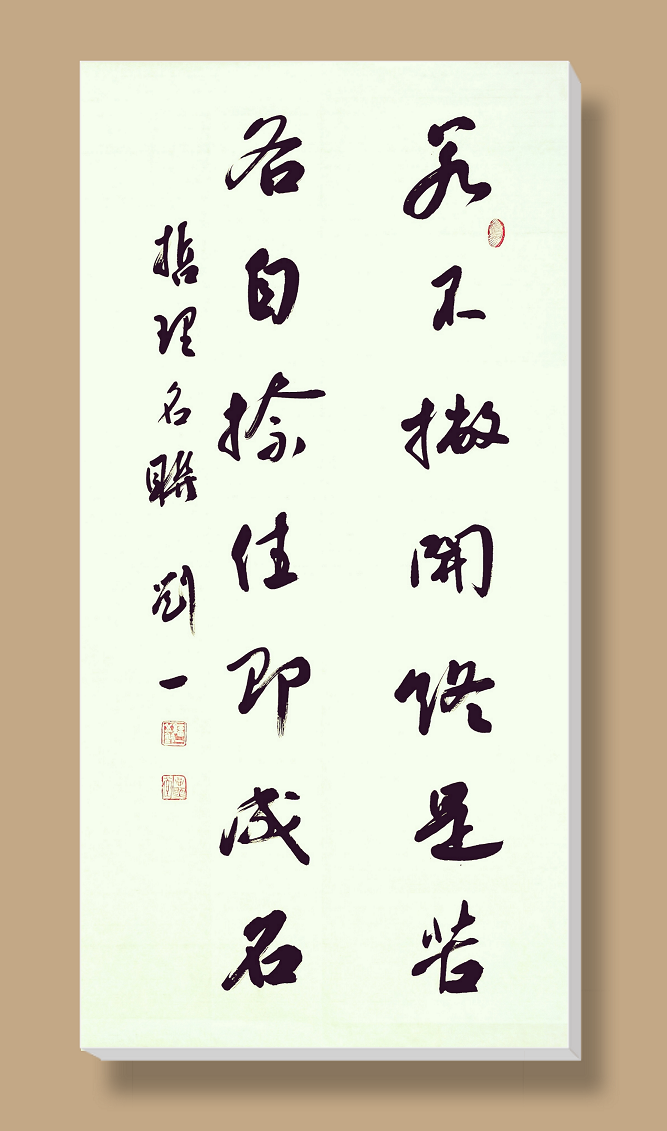 若不撇開終是苦
各自捺住即成名
哲理名聯 劉一